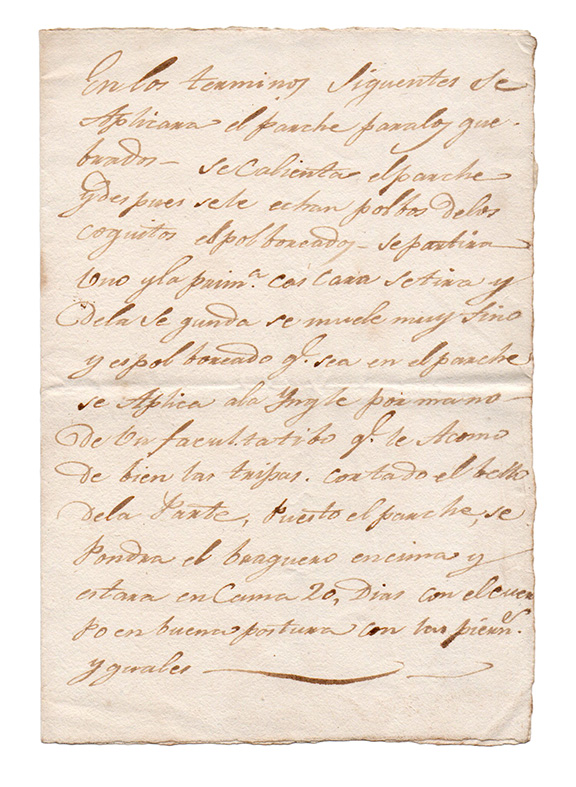 En los terminos siguentes se
Aplicara el parche para los que-
brados - se calienta el parche
y despues se le echan polbos de los
coquitos espolboreados - se partira
uno y la prim.ª cascara se tira y
de la segunda se muele muy fino
y espolboreado q.e sea en el parche
se Aplica a la Yngle por mano -
de un facultatibo q.e le Acomo
de bien las tripas. cortado el bello
de la Parte, puesto el parche, se
Pondra el braguero encima y
estara en Cama 20, Dias con el cuer
po en buena postura con las piern.s
yguales